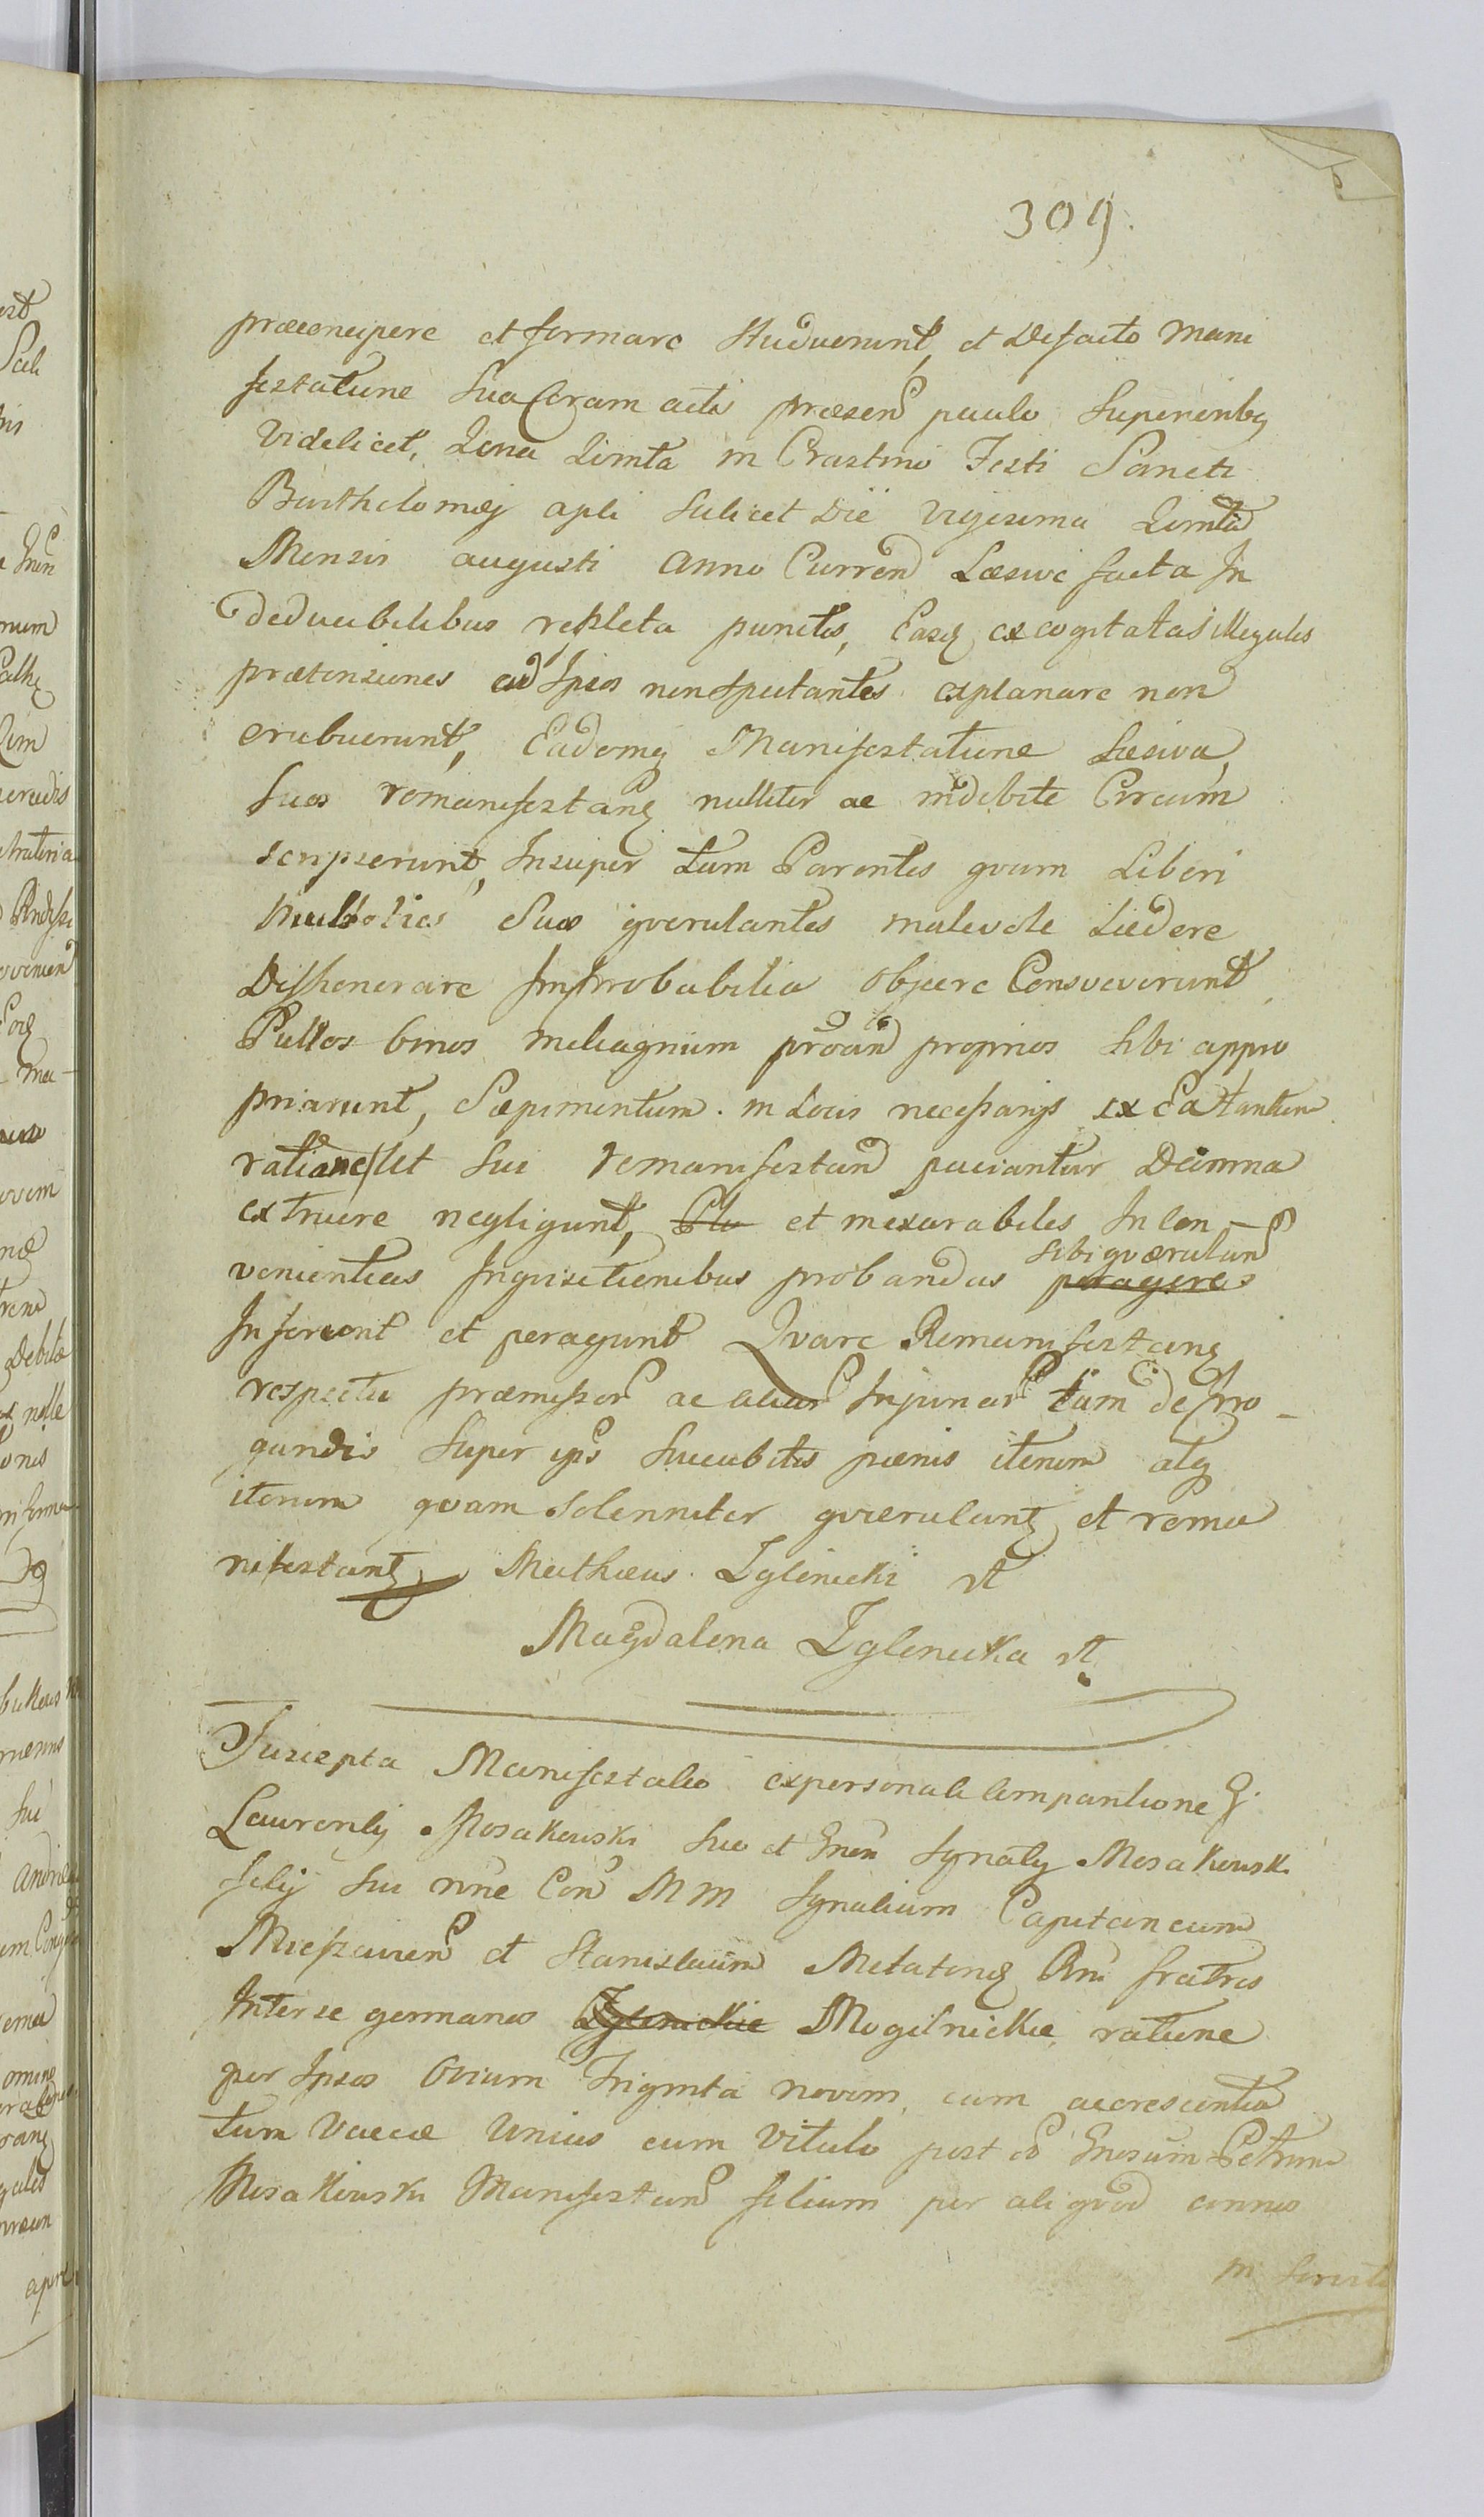 309.
præconcipere et formare studuerunt, et Defacto Mani
festatione sua Coram actis præsen paulo superioribq
Videlicet, Lona Limta in Crastino Festi Sancti
Bartholomæj apli scilicet Die vigesima Qvinta
Mensis augusti anno Curren Læsive facta In
deducibilibus repleta punctis, Easq excogitatas illegales
prætensiones ad Ipsos non spectantes explanare non
erubuerunt, Eademq Manifestatione Læsiva,
suos remanifestanq nulliter ac indebite Circum
scripserunt, Insuper tum Parentes qvam Liberi
Multoties Suos qverulantes malevole Lædere
Dishonorare Improbabilia objicere Consveverunt
Pullos binos meleagrium proprios sibi appro
priarunt, Sæpimentum in Locis necessarijs ex Ea tantum
ratione Ut sui remanifestan paciantur Damna
extruere negligunt, et inexarabiles Incon
venientias Inqvisitionibus probandas sibi qværulan peragere
Inferunt et peragunt Qvare Remanifestanq
respectu præmissor ac aliar Injuriar tam de irro-
gandis super ips succubitis pænis iterum atq
iterum qvam solenniter qværulant et rema
nifestant Mathæus Zglinicki
Magdalena Zglenicka
Suscepta Manifestatio ex personali Comparitione G
Laurentij Mosakowski suo et Gnen Ignatij Mosakowski
filij sui nne Con M M Ignatium Capitaneum
Mieszauien et Stanislaum Metatorq Rni fratres
Inter se germanos Zglenickie Mogilnickie, ratione
per Ipsos Ovium Triginta novem, cum accrescentia
tum Vaccæ Unius cum Vitulo post Gnosum Petrum
Mosakowski Manifestan filium per aliqvod annos
in servit